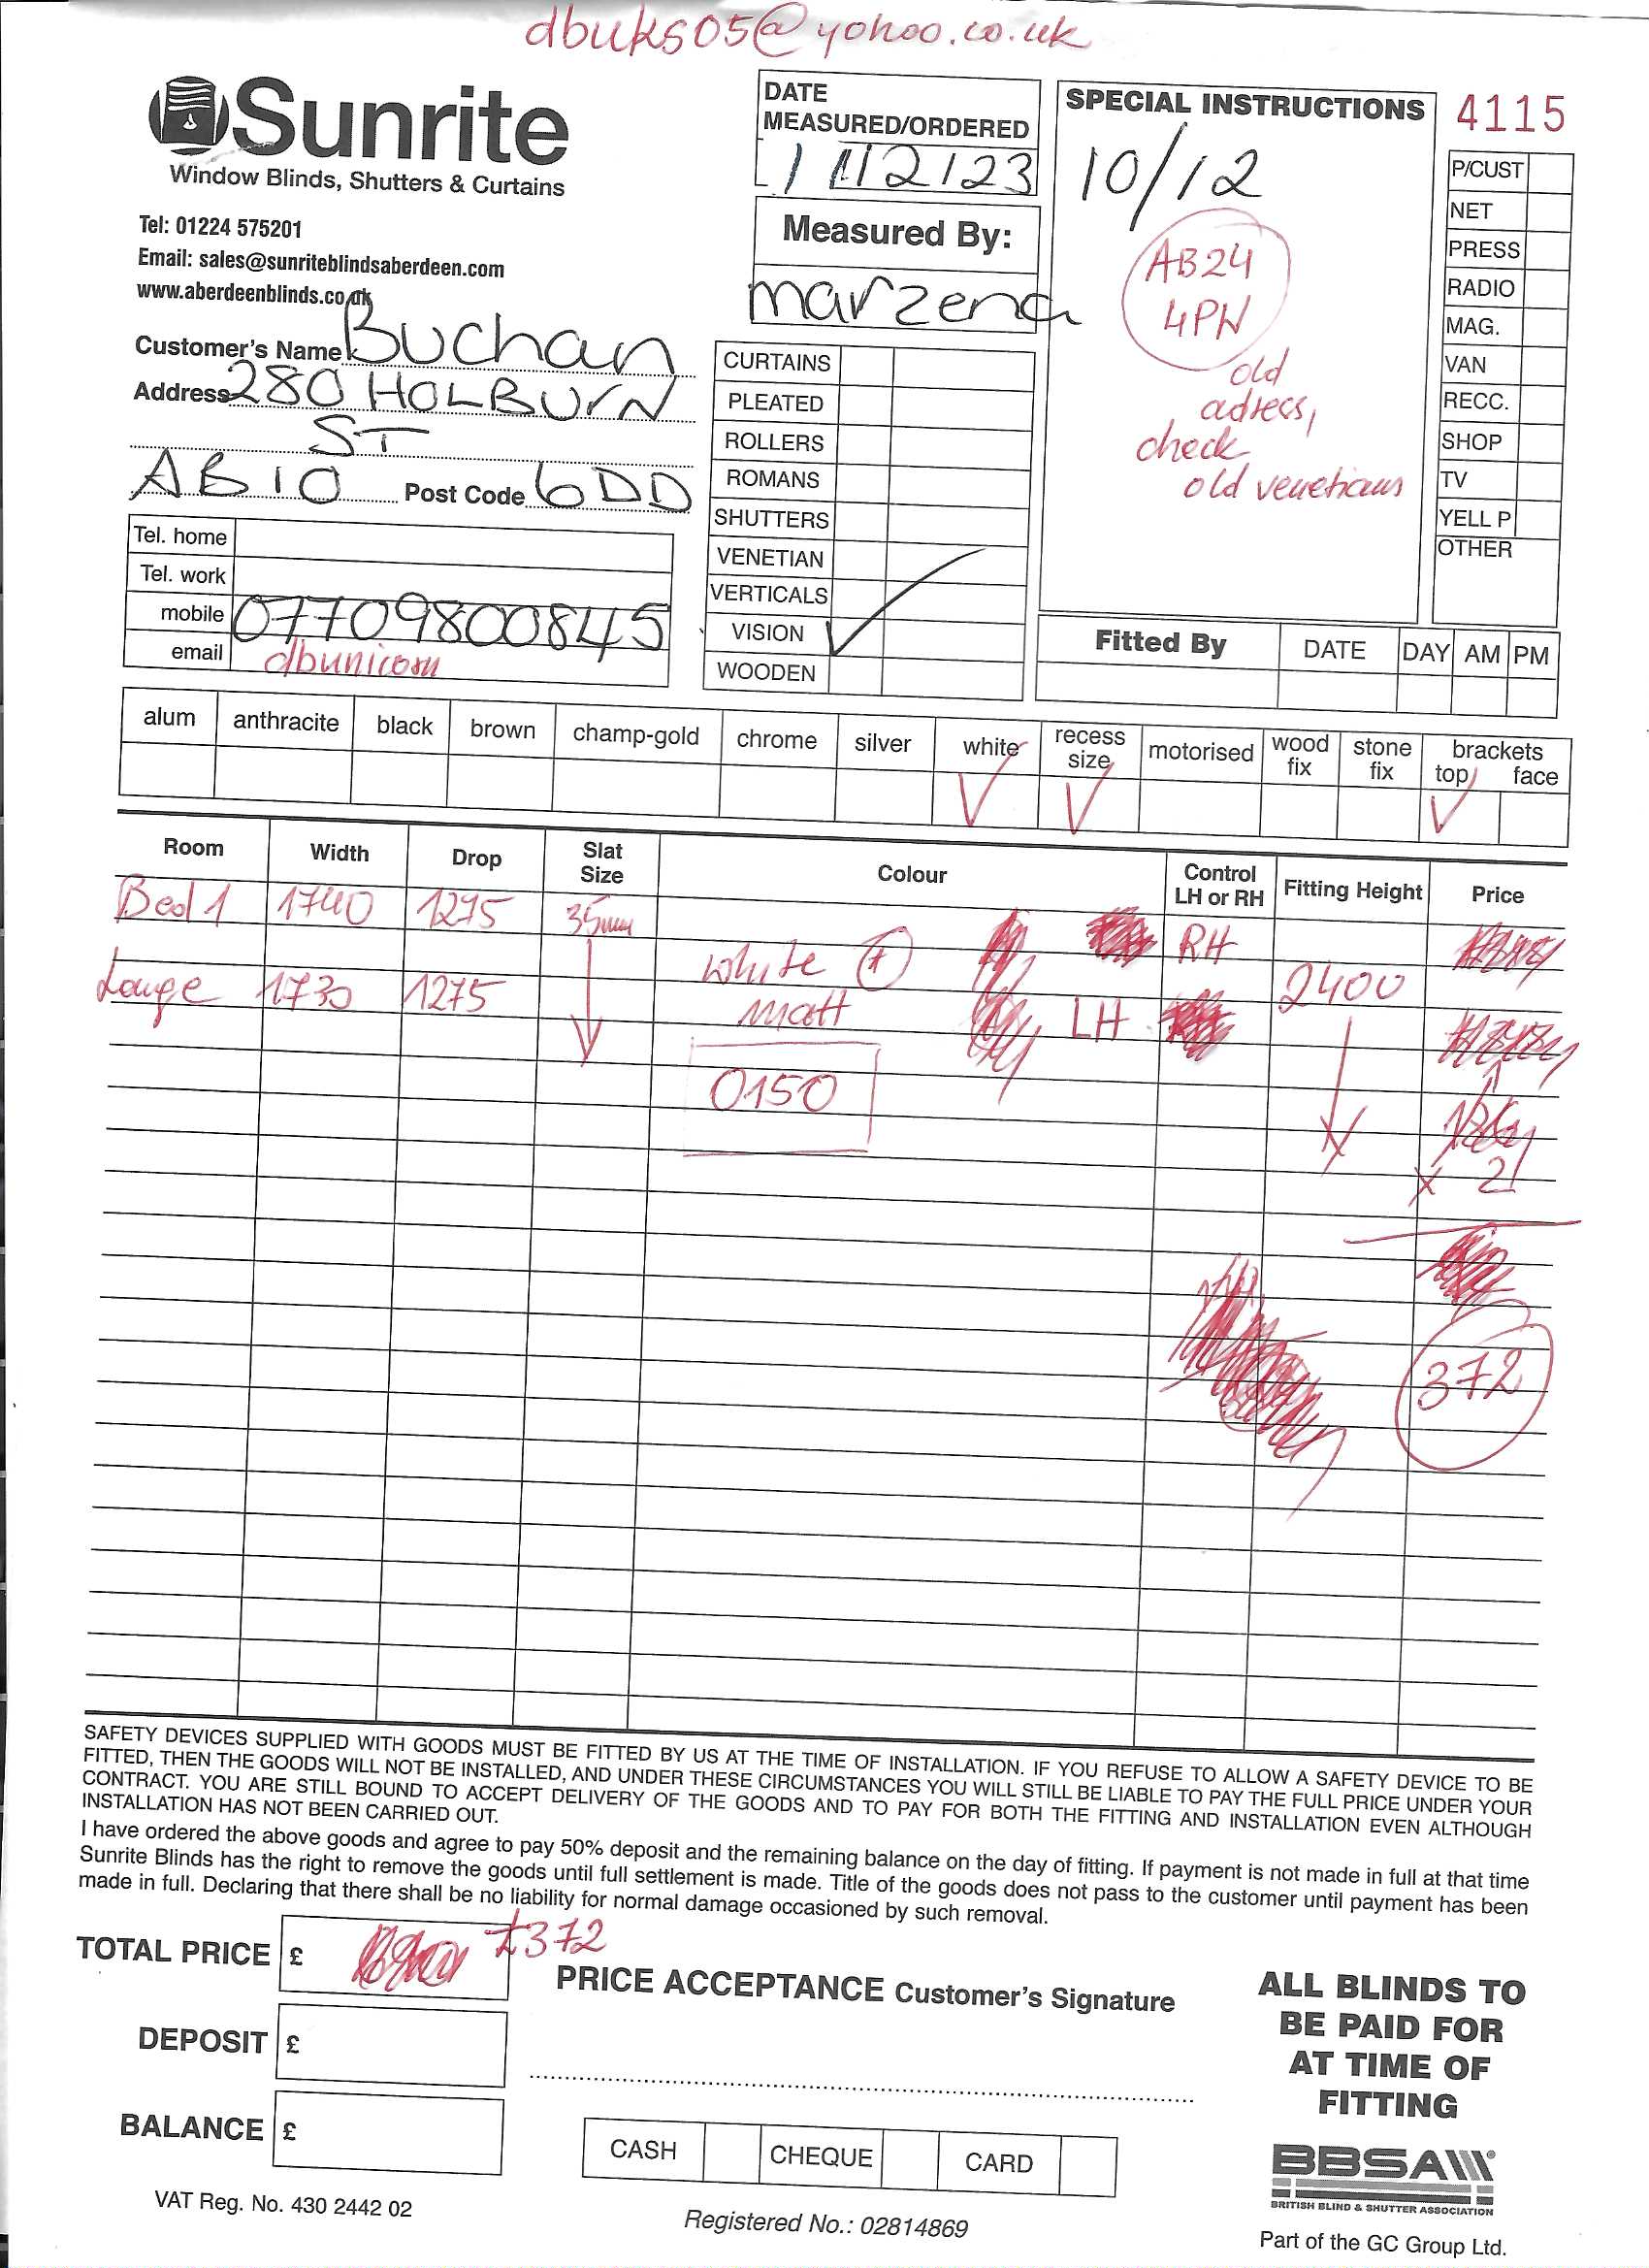 dbuks05@yohoo.co.uk
Sunrite
Window Blinds, Shutters & Curtains
Tel: 01224 575201
Email: sales@sunriteblindsaberdeen.com
www.aberdeenblinds.co.uk
Customer's Name Buchan
Address 280 HOLBURN
ST
AB10 Post Code 6DD
Tel. home
Tel. work
mobile 07709800845
email dbunicorn
DATE
MEASURED/ORDERED
1/12/23
Measured By:
marzena
CURTAINS
PLEATED
ROLLERS
ROMANS
SHUTTERS
VENETIAN
VERTICALS
VISION
WOODEN
SPECIAL INSTRUCTIONS
10/12
AB24
4PW
old
adress,
check
old venetians
4115
P/CUST
NET
PRESS
RADIO
MAG.
VAN
RECC.
SHOP
TV
YELL P
OTHER
Fitted By DATE DAY AM PM
alum anthracite black brown champ-gold chrome silver white recess size motorised wood fix stone fix brackets top face
Room Width Drop Slat Size Colour Control LH or RH Fitting Height Price
Bed 1 1740 1275 35mm RH
Louge 1730 1275 white matt LH 2400
0150
x 2
372
SAFETY DEVICES SUPPLIED WITH GOODS MUST BE FITTED BY US AT THE TIME OF INSTALLATION. IF YOU REFUSE TO ALLOW A SAFETY DEVICE TO BE
FITTED, THEN THE GOODS WILL NOT BE INSTALLED, AND UNDER THESE CIRCUMSTANCES YOU WILL STILL BE LIABLE TO PAY THE FULL PRICE UNDER YOUR
CONTRACT. YOU ARE STILL BOUND TO ACCEPT DELIVERY OF THE GOODS AND TO PAY FOR BOTH THE FITTING AND INSTALLATION EVEN ALTHOUGH
INSTALLATION HAS NOT BEEN CARRIED OUT.
I have ordered the above goods and agree to pay 50% deposit and the remaining balance on the day of fitting. If payment is not made in full at that time
Sunrite Blinds has the right to remove the goods until full settlement is made. Title of the goods does not pass to the customer until payment has been
made in full. Declaring that there shall be no liability for normal damage occasioned by such removal.
TOTAL PRICE £ £372
DEPOSIT £
BALANCE £
PRICE ACCEPTANCE Customer's Signature
CASH CHEQUE CARD
ALL BLINDS TO
BE PAID FOR
AT TIME OF
FITTING
BBSA
BRITISH BLIND & SHUTTER ASSOCIATION
VAT Reg. No. 430 2442 02
Registered No.: 02814869
Part of the GC Group Ltd.